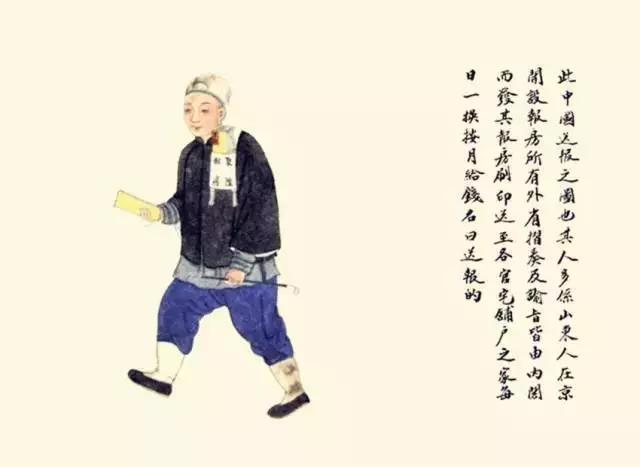 此中國送報之圖也其人多係山東人在京
開設報房所有外省摺奏及諭旨皆由內閣
而發其報房刷印送至各官宅舖戶之家每
日一換按月給錢名曰送報的